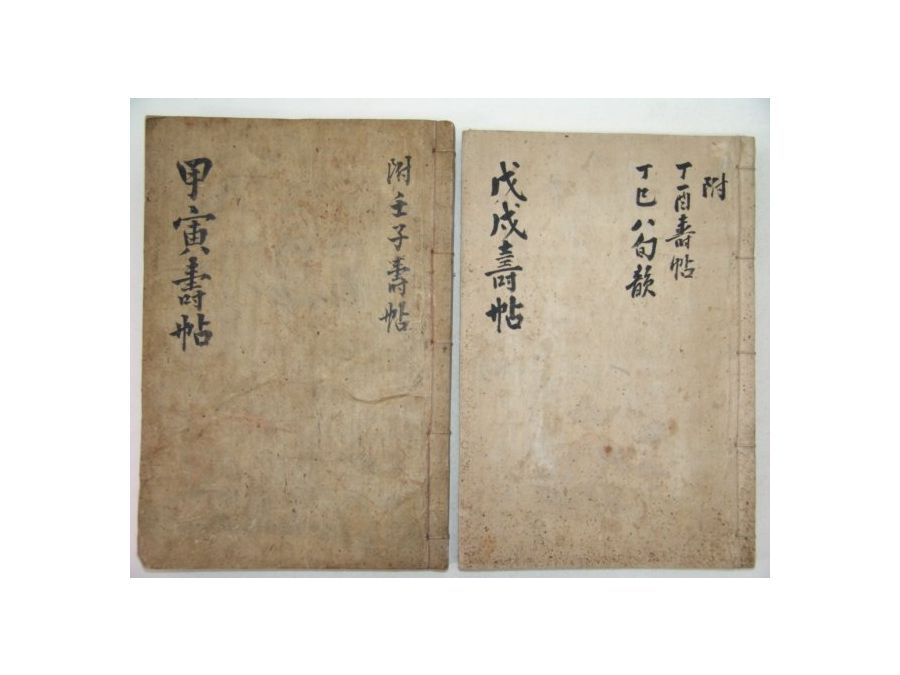 甲寅壽帖
附壬子壽帖
戊戌壽帖
附
丁酉壽帖
丁巳八旬韻